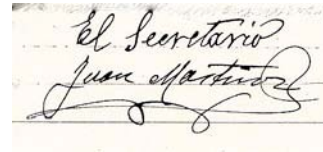 El Secretario
Juan Martinez